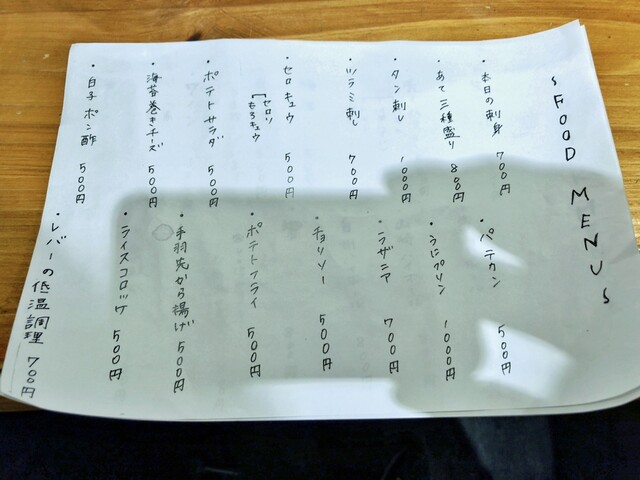 ~ FOOD MENU ~
・本日の刺身 700円
・あて三種盛り 800円
・タン刺し 1000円
・ツラミ刺し 700円
・セロキュウ 500円
[セロリ
もろキュウ
・ポテトサラダ 500円
・海苔巻きチーズ 500円
・白子ポン酢 500円
・パテカン 500円
・うにプリン 1000円
・ラザニア 700円
・チョリソー 500円
・ポテトフライ 500円
・手羽先から揚げ 500円
・ライスコロッケ 500円
・レバーの低温調理 700円